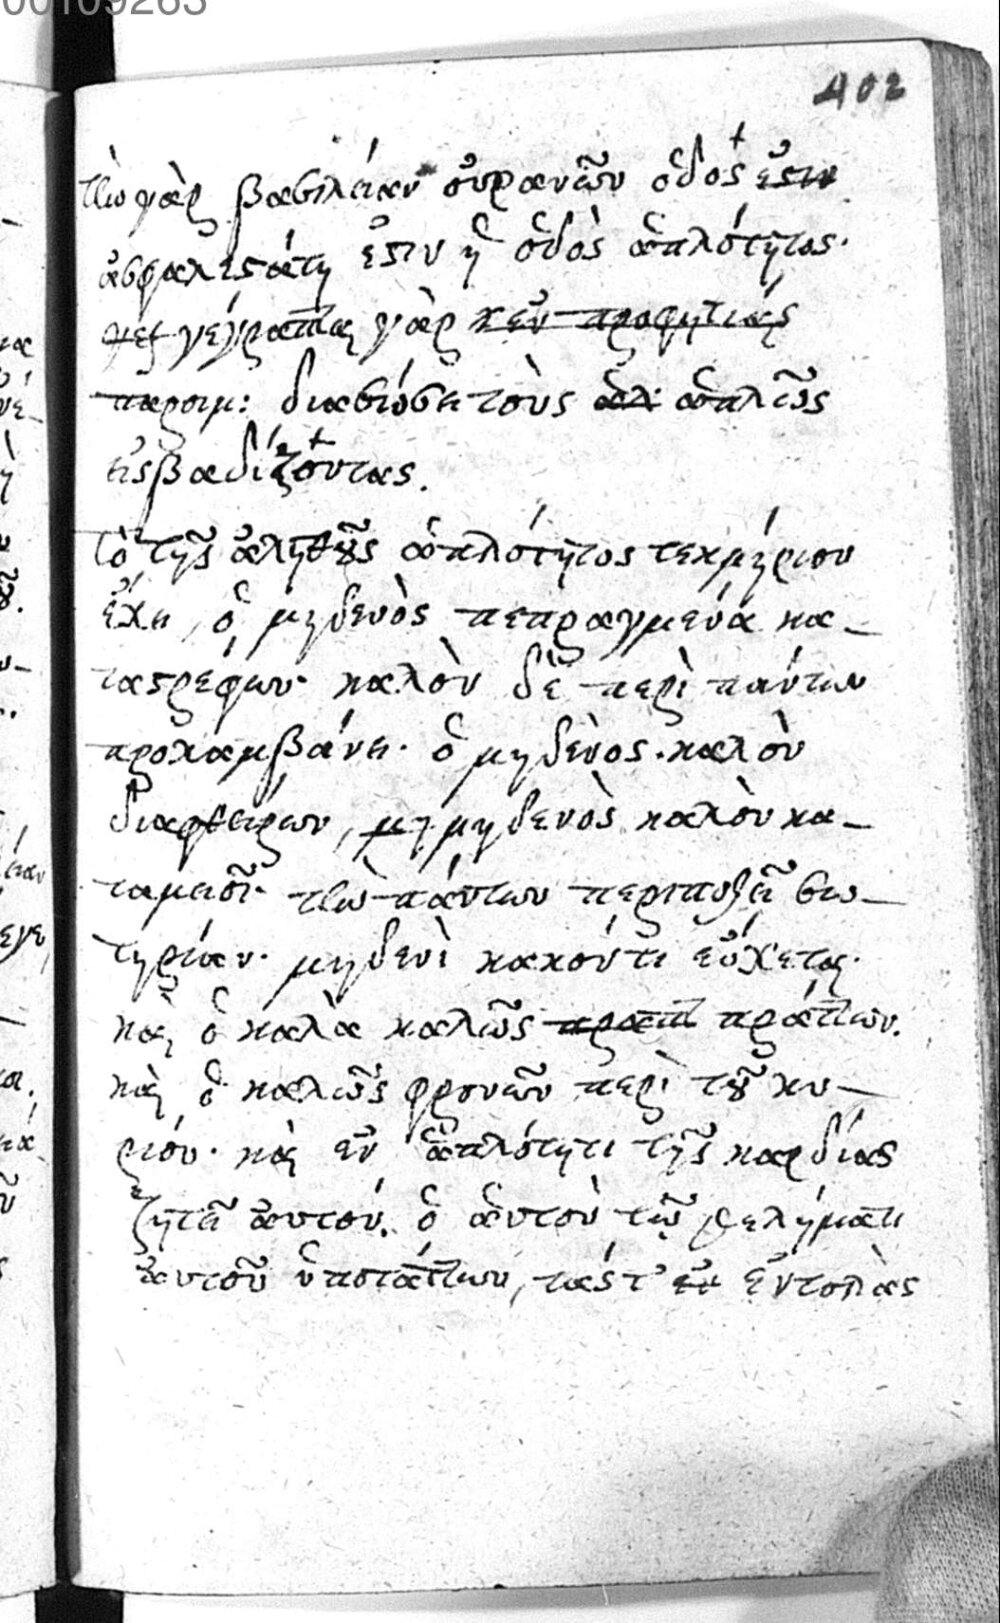 00109263
402
τὴν γὰρ βασιλείαν οὐρανῶν ὁδός ἐστιν
ἀσφαλεστάτη ἐστιν ἡ ὁδὸς ἁπλότητος.
γέγραπται γὰρ κἐν προφητιάς
παροιμ: διασώσει τοὺς ἁπλ ἁπλῶς
εἰσβαδίζοντας.
τὸ τῆς ἀληθοῦς ἁπλότητος τεκμήριον
ἔχει, ὁ μηδενὸς πεπραγμένα κα_
ταστρέφων. καλὸν δὲ περὶ πάντων
προλαμβάνει. ὁ μηδένος. καλὸν
διαφθείρων, μη μηδενὸς καλὸν κα_
ταμεισῖ. τὴν πάντων περιποιεῖ σω_
τηρίαν. μηδενὶ κακόντι εὔχεται.
καὶ ὁ καλὰ καλῶς πραττ πράττων.
καὶ ὁ καλῶς φρονῶν περὶ τοῦ κυ_
ρίου. καὶ ἐν ἁπλότητι τῆς καρδίας
ζητεῖ αὐτόν. ὁ ἁυτὸν τῷ θελήματι
ἀυτοῦ ὑποτάττων, τάς τ' εν ἐντολὰς